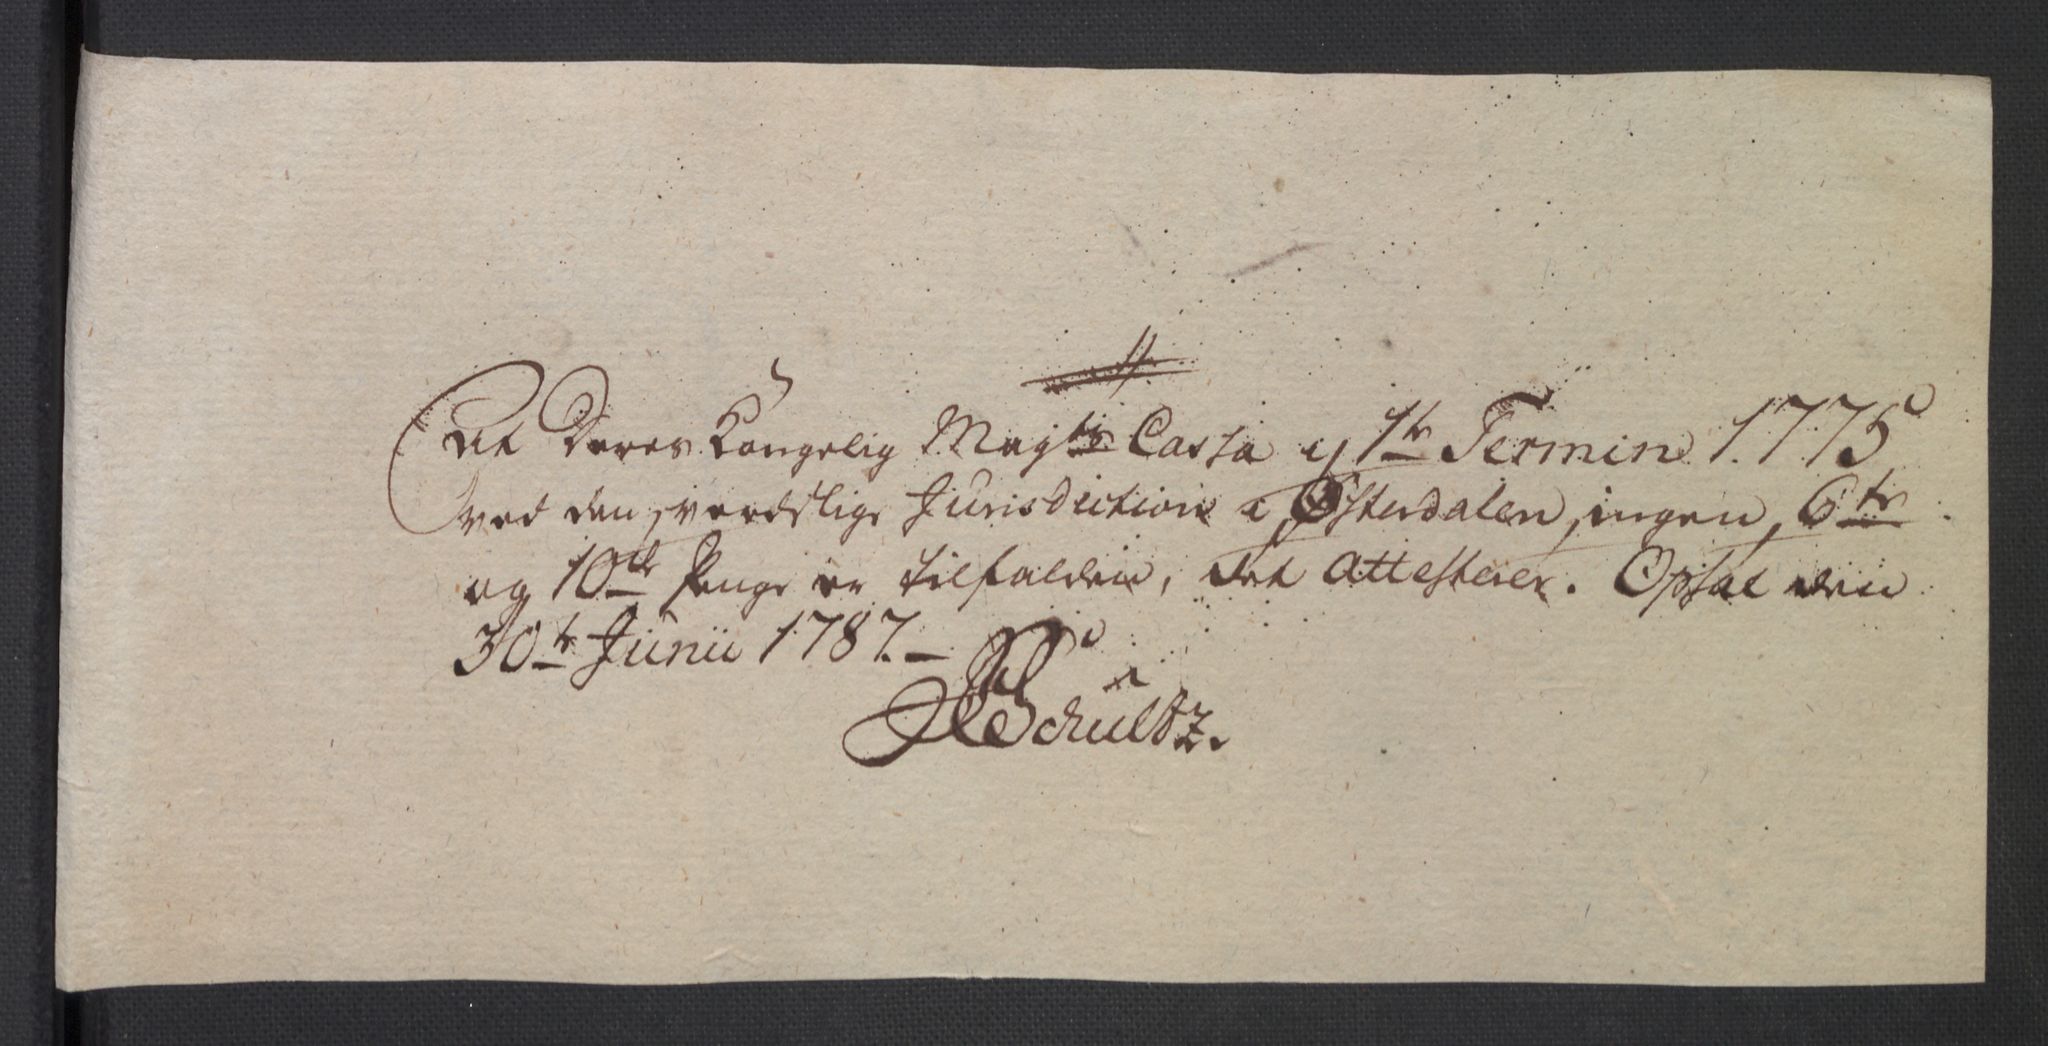 At Deres Kongelig Mayts Cassa i 1te Termin 1775
ved den verdslige Jurisdiction i Østerdalen, ingen, 6te
og 10de Penge er tilfalden, det attesterer. Opsal den
30te Junii 1787.
Schultz.